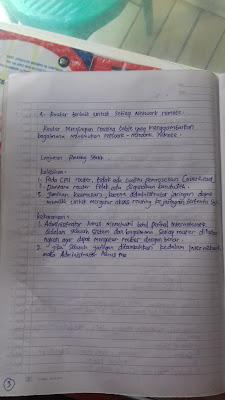 4. Router terbaik untuk setiap Network remote.
Router Menyimpan Routing table yang menggambarkan
bagaimana menemukan Network-Network Remote.
Routing Statik
kelebihan:
1. Pada CPU router, tidak ada waktu pemrosesan (overhead)
2. router tidak ada digunakan bandwith.
3. keamanan, karena Administrator jaringan dapat
memilih untuk mengatur akses routing ke jaringan tertentu saja.
kekurangan:
1. Administrator harus mengerti Internetwork
didalam sebuah sistem dan bagaimana setiap router di
agar dapat Mengatur router dengan benar.
2. jika sebuah jaringan ditambahkan kedalam Internetwork
maka Administrator harus me
3